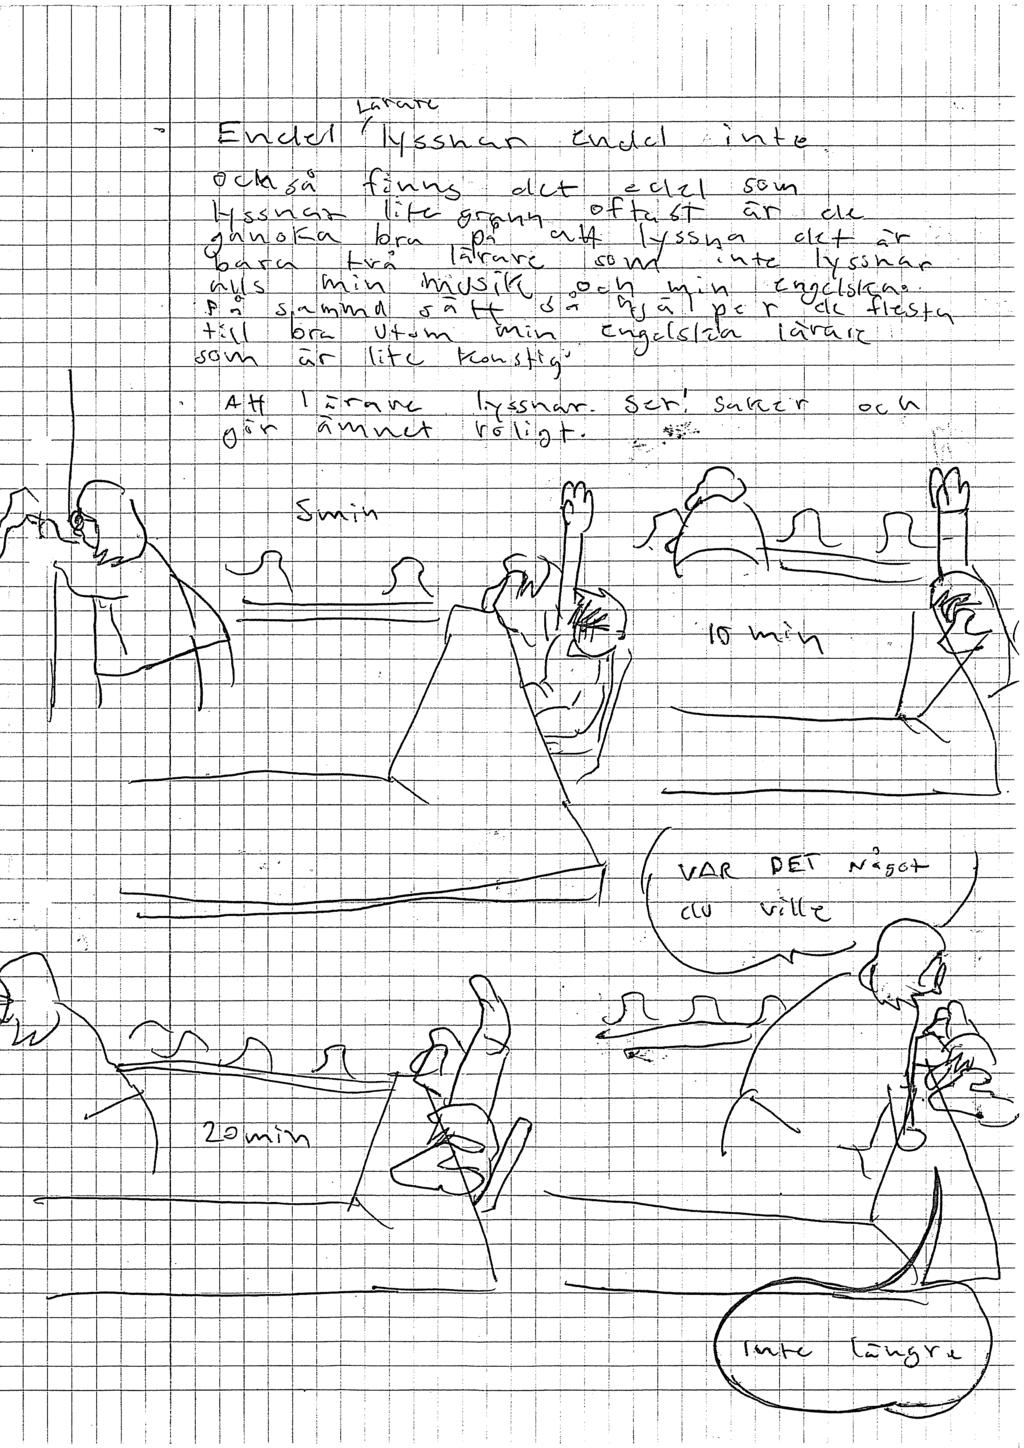 Endel lärare lyssnar endel inte.
också finns det edel som
lyssnar lite grann oftast är de
ganska bra på att lyssna det är
bara två lärare som inte lyssnar
min musik och min engelska.
På samma sätt så hjälper de flesta
till bra utom min engelska lärare
som är lite konstig.
Att lärare lyssnar. Ser! saker och
gör ämnet roligt.
5min
10 min
VAR DET Något
du ville
20min
Inte längre